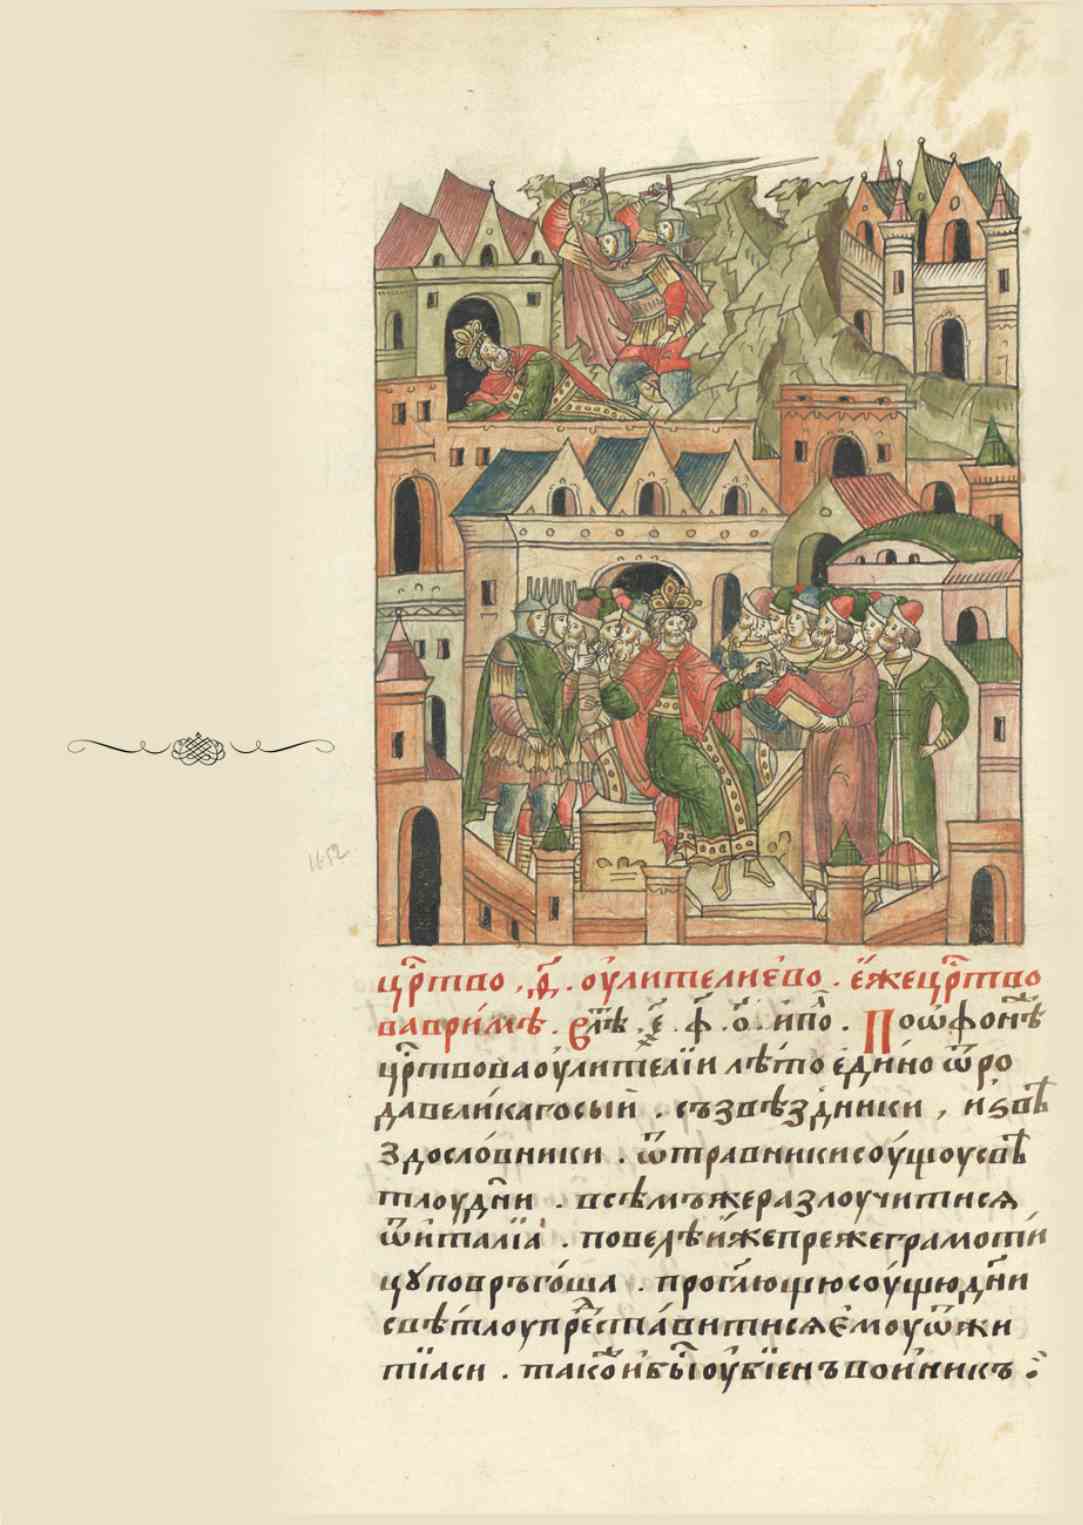 1652
црⷭ҇тво , д҃ . оулителиєво . е́жецрⷭ҇тво
ваври́мѣ . влⷮѣ . ҂є҃ . ф҃ . о҃ . ипоⷧ . Поѡѳонѣ
црⷭ҇твоваоу́лителїи лѣ́то еди́но ѿро
давели́кагосый . съзвѣздники , иѕвѣ
здосло́вники . ѿтравникисоу́щоусвѣ
тлоудн҃и . всѣмъжеразлоучитися
ѿита́лїа . повелѣи́жепрежеграмоти́
цꙋповръго́ша . прогл҃ющюсоу́щюдн҃и
свѣ́тлоупрⷭ҇еста́витисяємоуѿжи
тїѧси . такоⷤибы́оубїенъвои́никъ